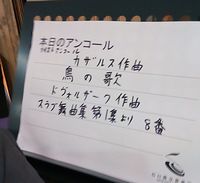 本日のアンコール
カザルス作曲
鳥の歌
ドヴォルザーク作曲
スラブ舞曲集第1集より 8番